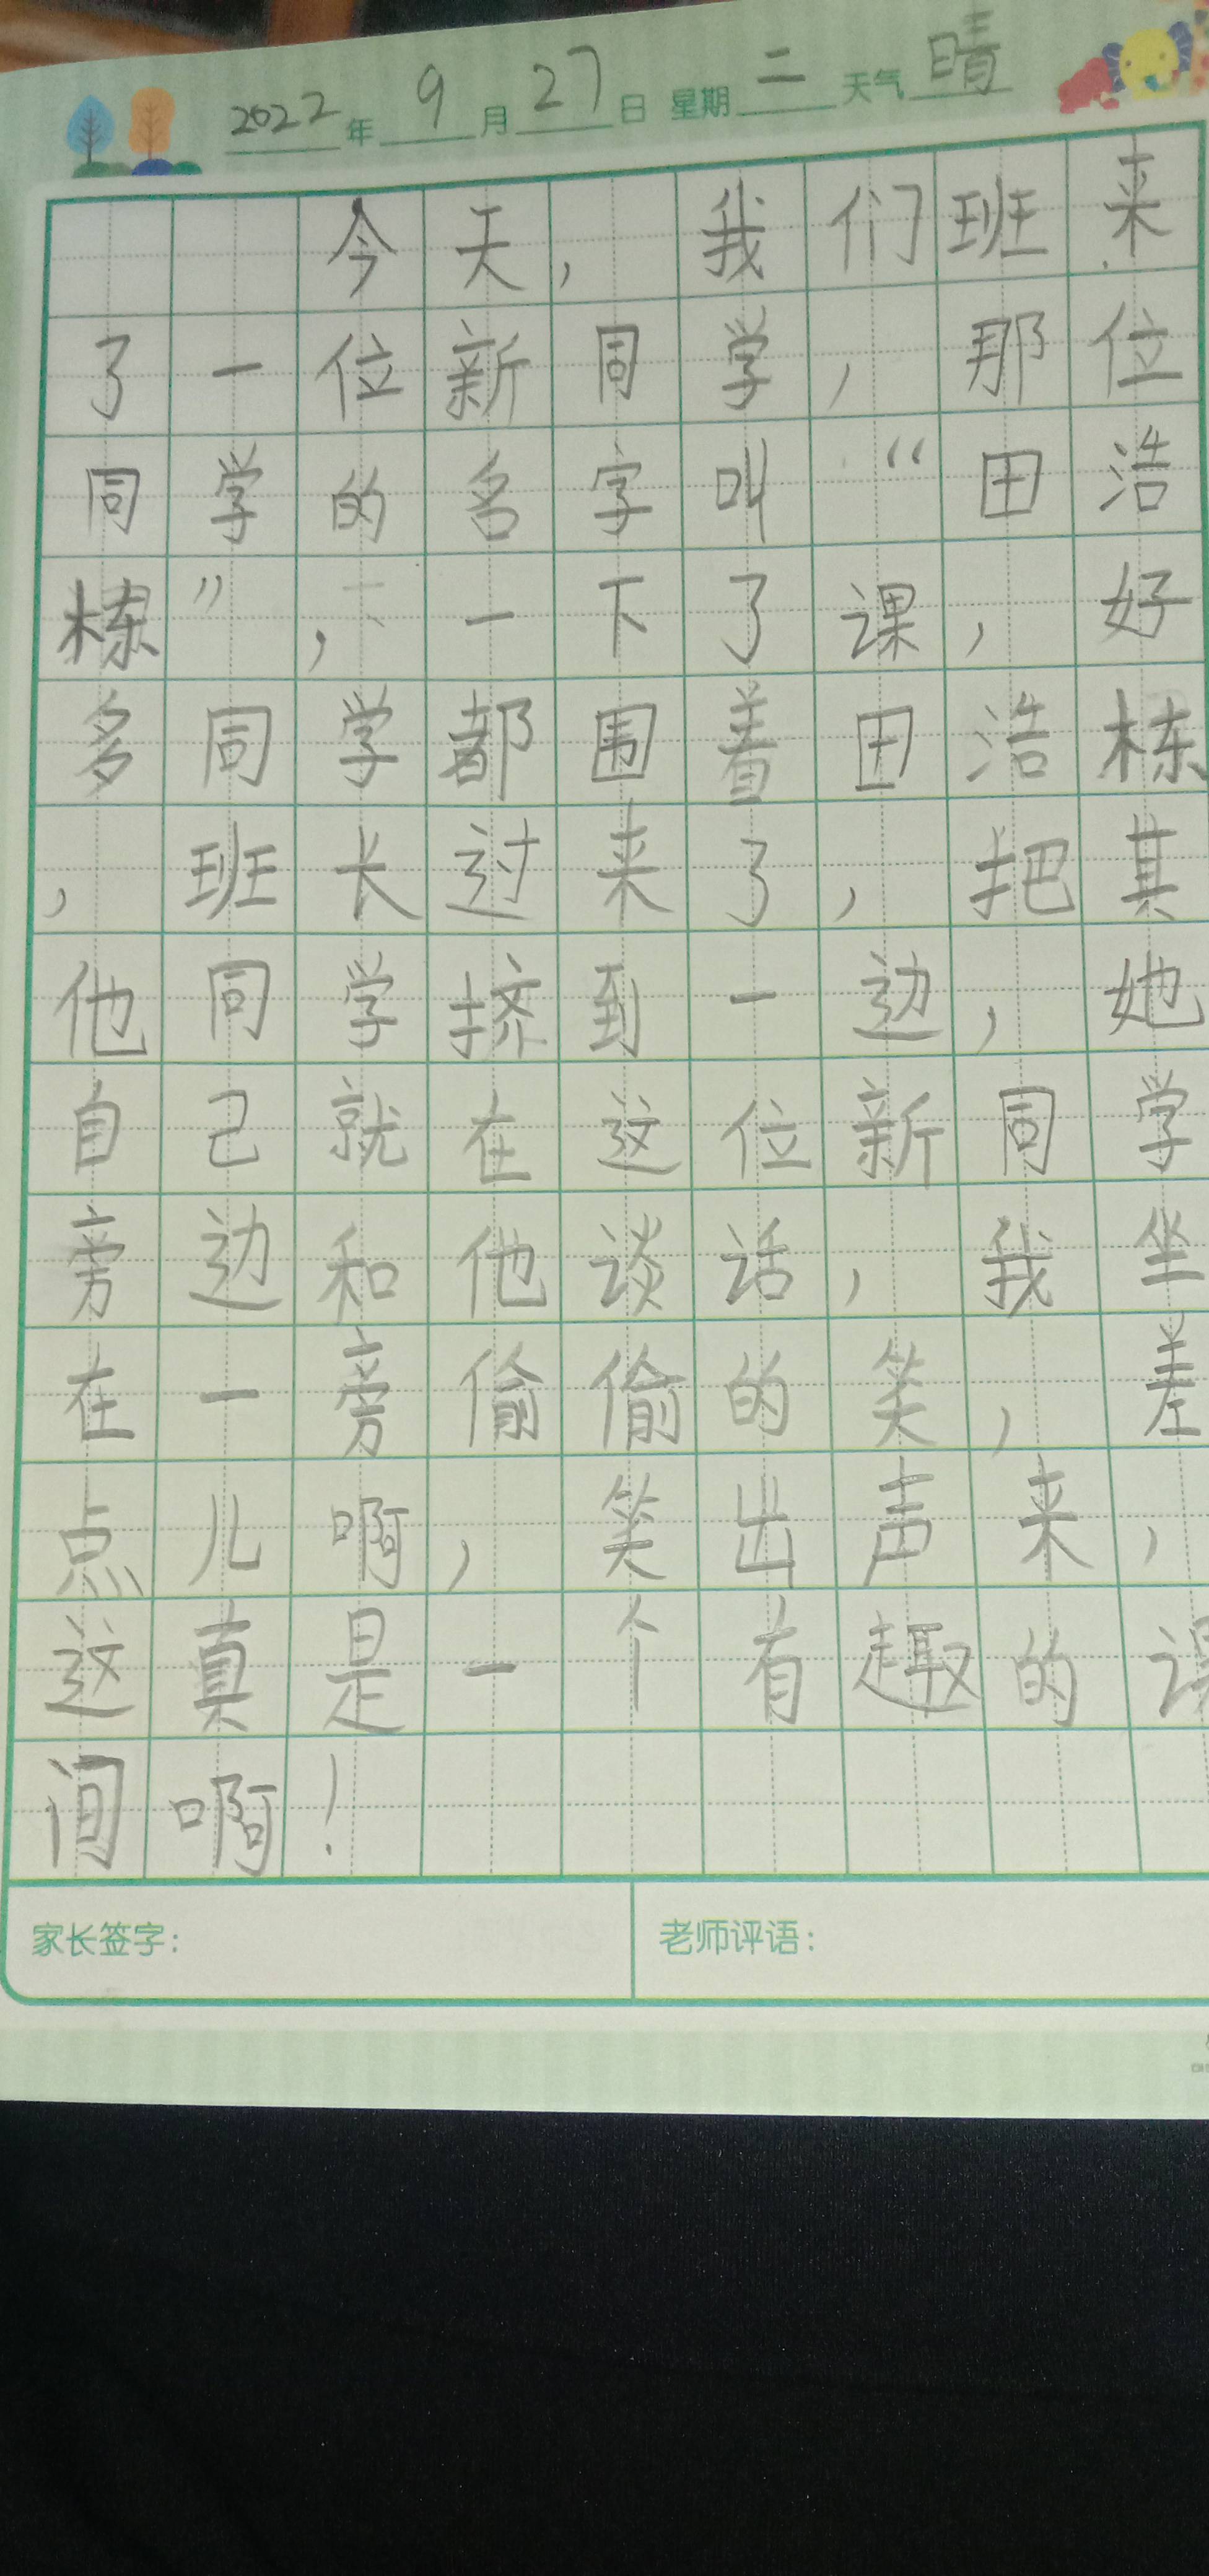 2022年9月27日 星期二 天气晴
今天,我们班来
了一位新同学,那位
同学的名字叫“田浩
栋”,一下了课,好
多同学都围着田浩栋
,班长过来了,把其
他同学挤到一边,她
自己就在这位新同学
旁边和他谈话,我坐
在一旁偷偷的笑,差
点儿啊,笑出声来,
这真是一个有趣的课
间啊!
家长签字: 老师评语: